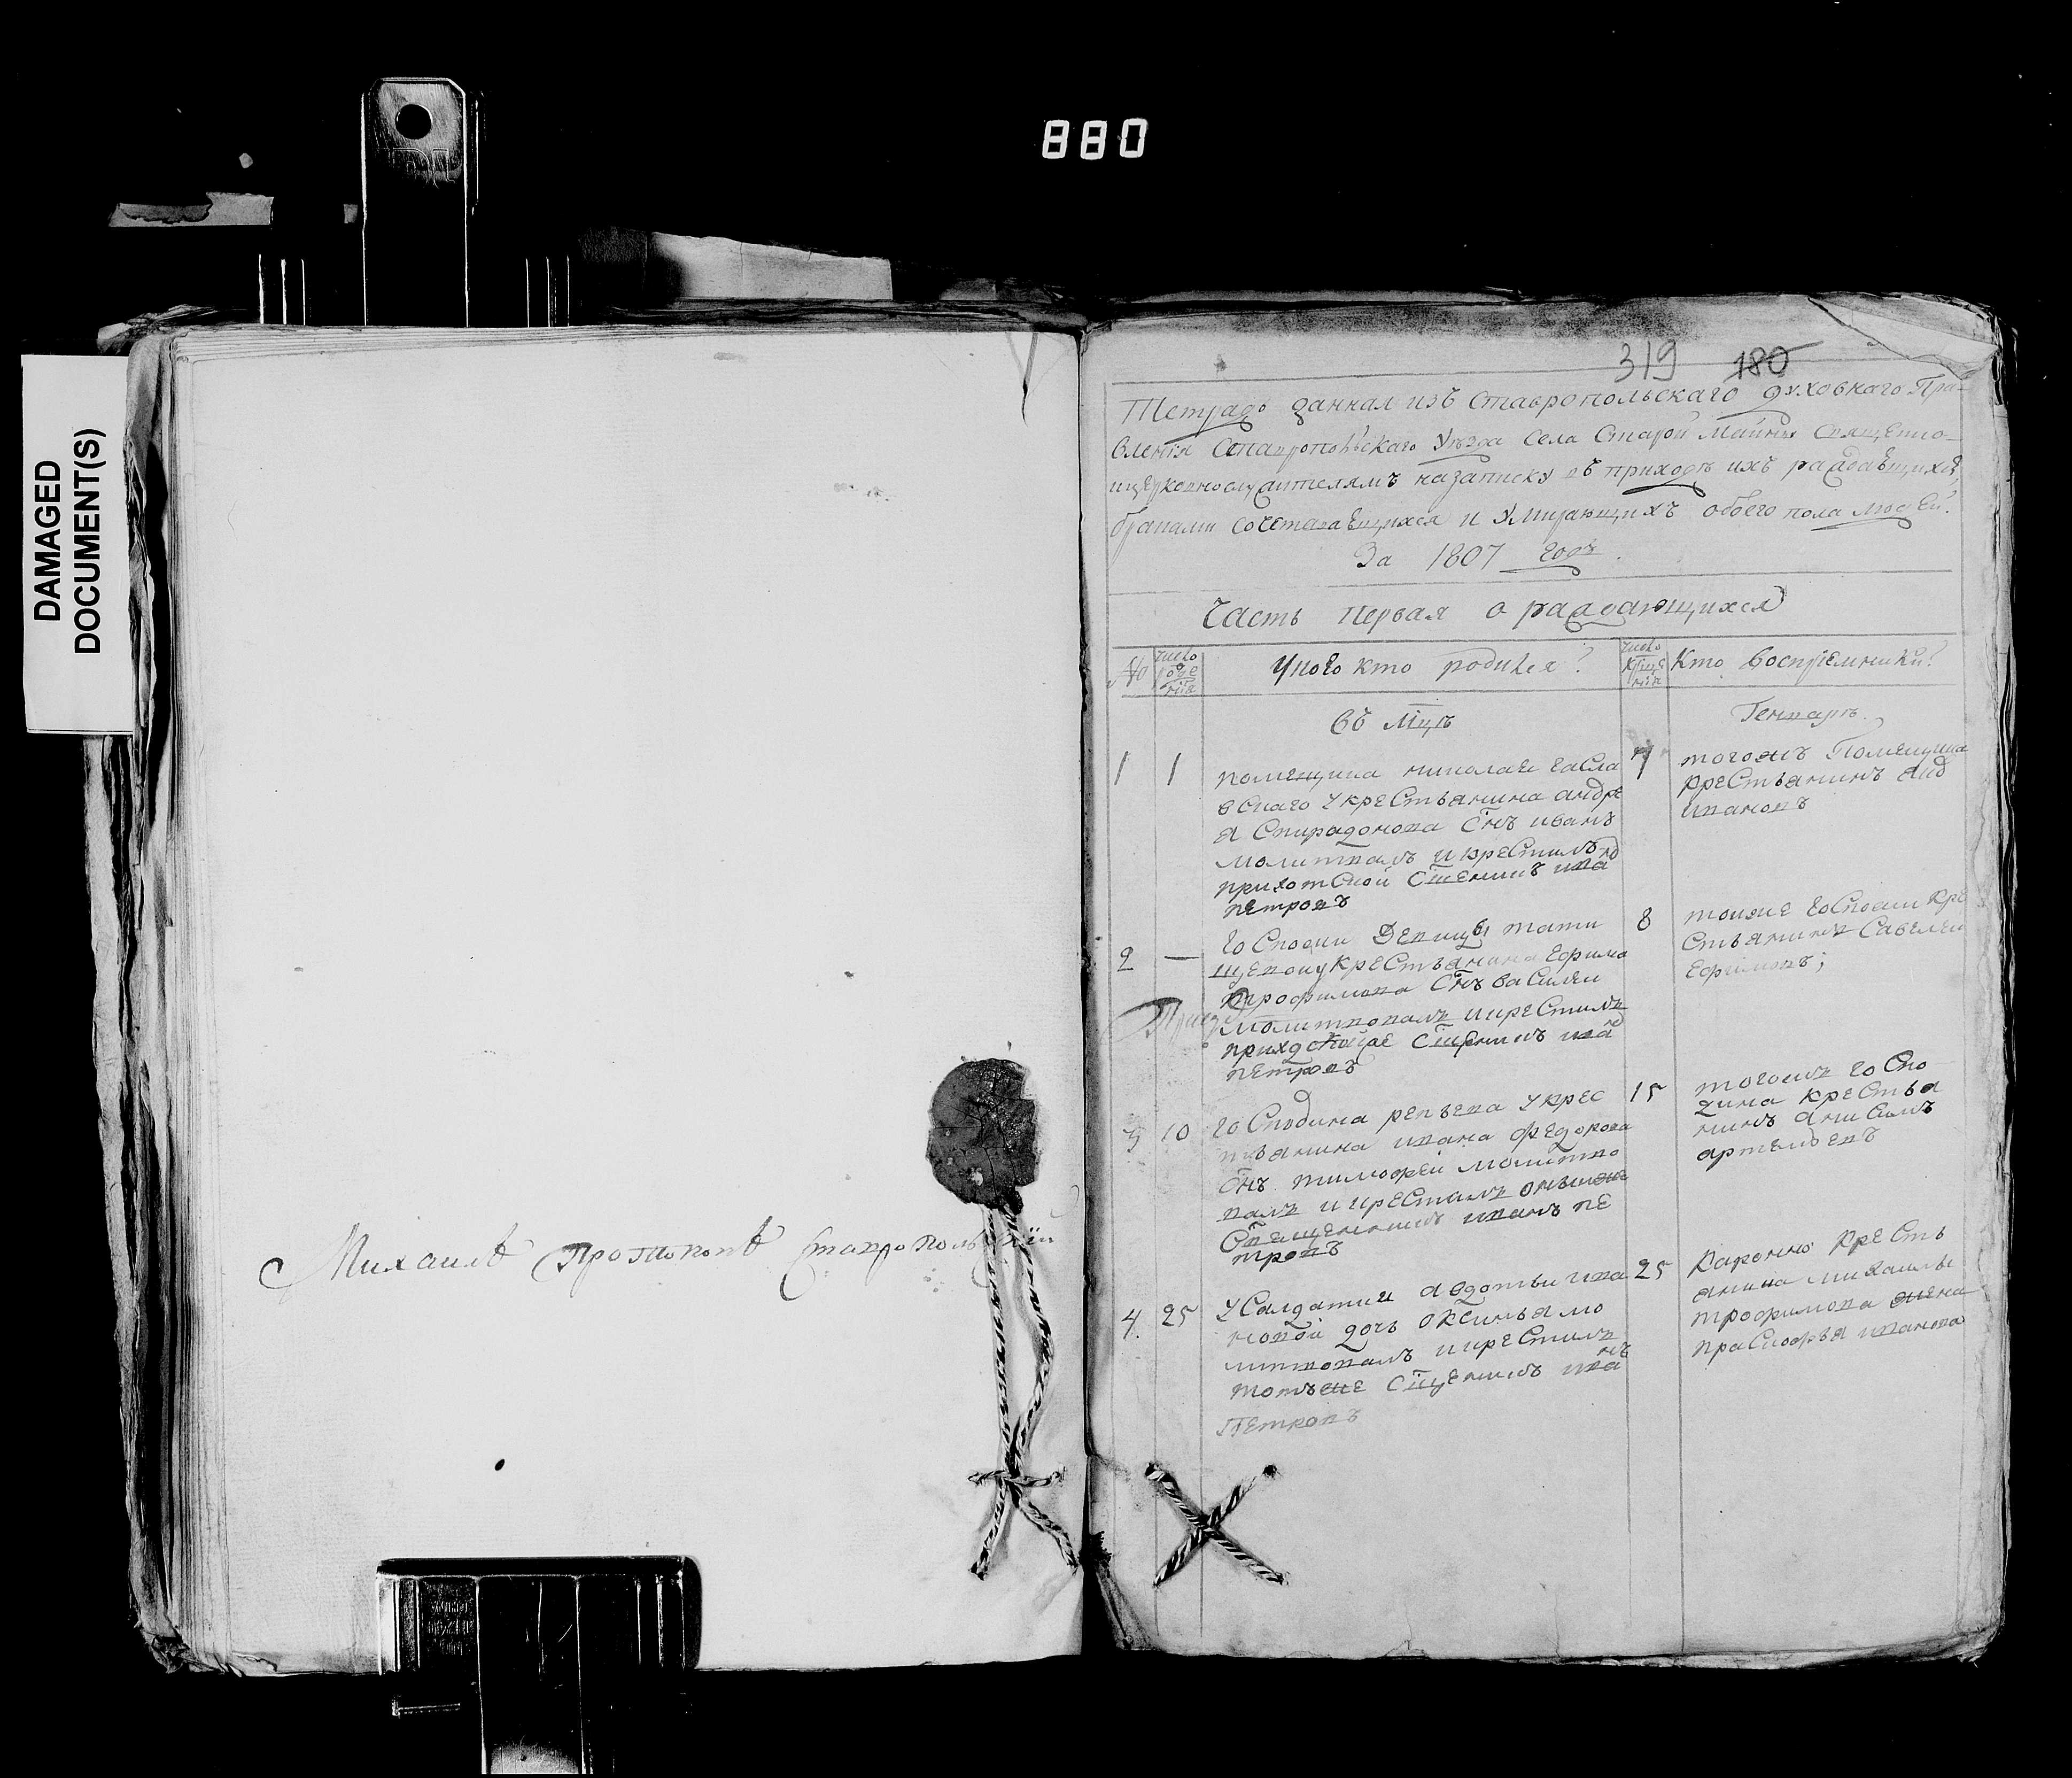 880
DAMAGED
DOCUMENT(S)
Михаилъ Протопопъ Ставропольскїй
319 180
Тетрадь данная изъ Ставропольскаго духовнаго Пра-
вленїя Ставропольскаго уѣзда села Старой Майны Священно-
ицерковнослужителямъ назаписку въ приходѣ ихъ раждавшихся,
браками сочетавшихся и умирающихъ обоего пола людей.
За 1807 годъ.
Часть первая о раждающихся
№ число рожденїя Укого кто родился? число крщенїя Кто воспрїемники?
въ мцѣ Генварѣ
1 1 помещика николае васла
вскаго укрестьянина андре
я Спирадонова снъ иванъ
молитвалъ икрестилъ
приходской сщенникъ иванъ
петровъ
7 тогожъ Помещика
крестьянинъ
ивановъ
2 — Госпожи Девицы тати
щевой укрестьянина Ефима
трофимова снъ василеи
молитвовалъ икрестилъ
сщенникъ иванъ
петровъ
8 тоиже Госпожи кре
стьянинъ Савелеи
Ефимовъ;
3 10 Господина репьева укрес
тьянина ивана федорова
снъ тимофей молитво
валъ и крестилъ онъже
Священникъ иванъ пе
тровъ
15 тогожъ Госпо
дина крестья
нинъ анисимъ
артемьевъ
4. 25 уСалдатки авдотьи ива
новой дочь оксинья мо
литвовалъ икрестилъ
тотъже сщенникъ иванъ
Петровъ
25 кресть
янина михаилы
трофимова жена
прасковья иванова